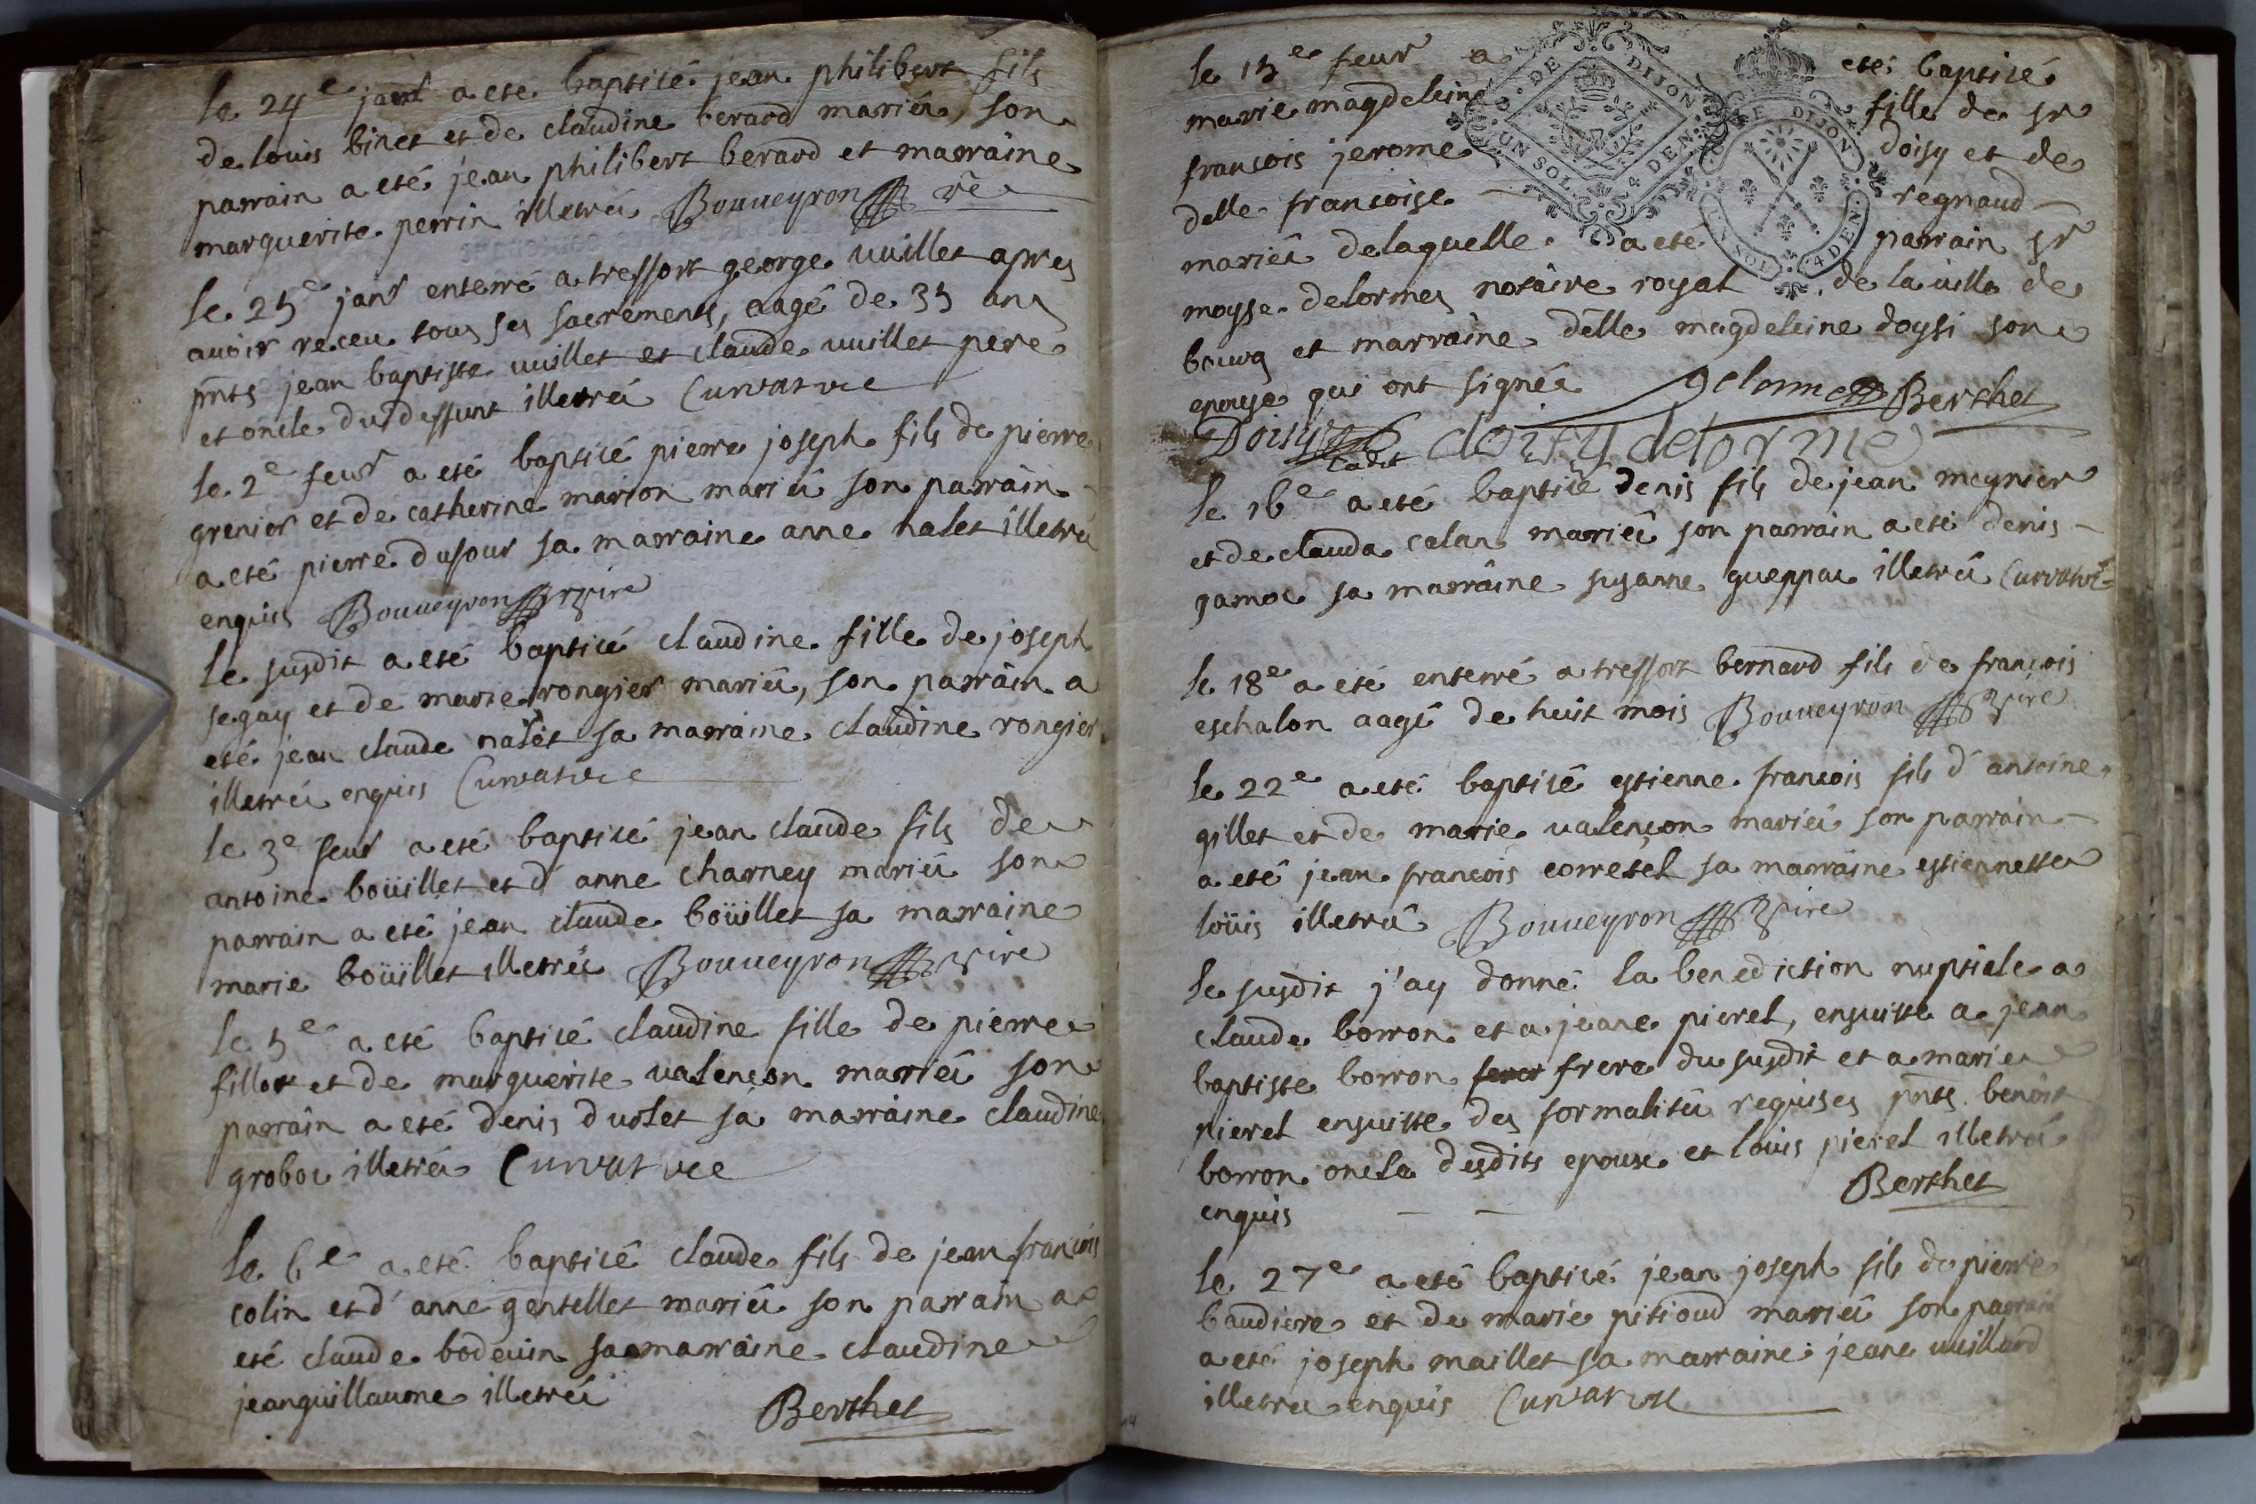 le 24e janr a eté baptisé jean philibert fils
de louis binet et de claudine berard mariéz, son
parrain a eté jean philibert berard et marraine
marguerite perrin illetréz Bouueyron vre
le 25e janr enterré a treffort george uuillet apres
auoir receu tous ses sacrements, aagé de 35 ans
pnts jean baptiste uuillet et claude uuillet pere
et oncle du deffunt illetréz Curvat vre
le 2e feur a eté baptisé pierre joseph fils de pierre
grenier et de catherine mairon mariéz son parrain
a eté pierre dufour sa marraine anne nalet illetréz
enquis Bouueyron vire
le susdit a eté baptisé claudine fille de joseph
segay et de marie rongier mariéz, son parrain a
eté jean claude nalet sa marraine claudine rongier
illetréz enquis Curvat vre
le 3e feur a eté baptisé jean claude fils de
antoine boüillet et d'anne charney mariéz son
parrain a eté jean claude boüillet sa marraine
marie boüillet illetréz Bouueyron vire
le 5e a eté baptisé claudine fille de pierre
fillot et de marguerite valençon mariéz son
parrain a eté denis duolet sa marraine claudine
groboz illetréz Curvat vre
le 6e a eté baptisé claude fils de jean françois
colin et d'anne gentellet mariéz son parrain a
eté claude bodeuin sa marraine claudine
jeanguillaume illetréz
Berthet
le 15e feur a eté baptisé
marie magdeleine fille de sr
françois jerome doisy et de
delle françoise regnaud
mariéz delaquelle a eté parrain sr
moyse delormes notaire royal de la uille de
bourg et marraine delle magdeleine doysi son
epouse qui ont signéz Delorme Berthet
Doisy Cadet doisy delorme
le 16e a eté baptisé denis fils de jean meynier
et de clauda calan mariéz son parrain a eté denis
gamoz sa marraine susanne gueppaz illetréz Curvat vre
le 18e a eté enterré a treffort bernard fils de françois
eschalon aagé de huit mois Bouueyron vire
le 22e a eté baptisé estienne françois fils d'antoine
gillet et de marie valençon mariéz son parrain
a eté jean françois corretel sa marraine estiennette
loüis illetréz Bouueyron vire
le susdit j'ay donné la benediction nuptiale a
claude borron et a jeane pierel, ensuitte a jean
baptiste borron frere du susdit et a marie
pierel ensuitte des formalitéz requises pnts benoit
borron oncle desdits epoux et louis pierel illetréz
enquis Berthet
le 27e a eté baptisé jean joseph fils de pierre
baudiere et de marie pitioud mariéz son parrain
a eté joseph maillet sa marraine jeane uuillard
illetréz enquis Curvat vre
DE DIJON
UN SOL 4 DEN.
DE DIJON
UN SOL 4 DEN.